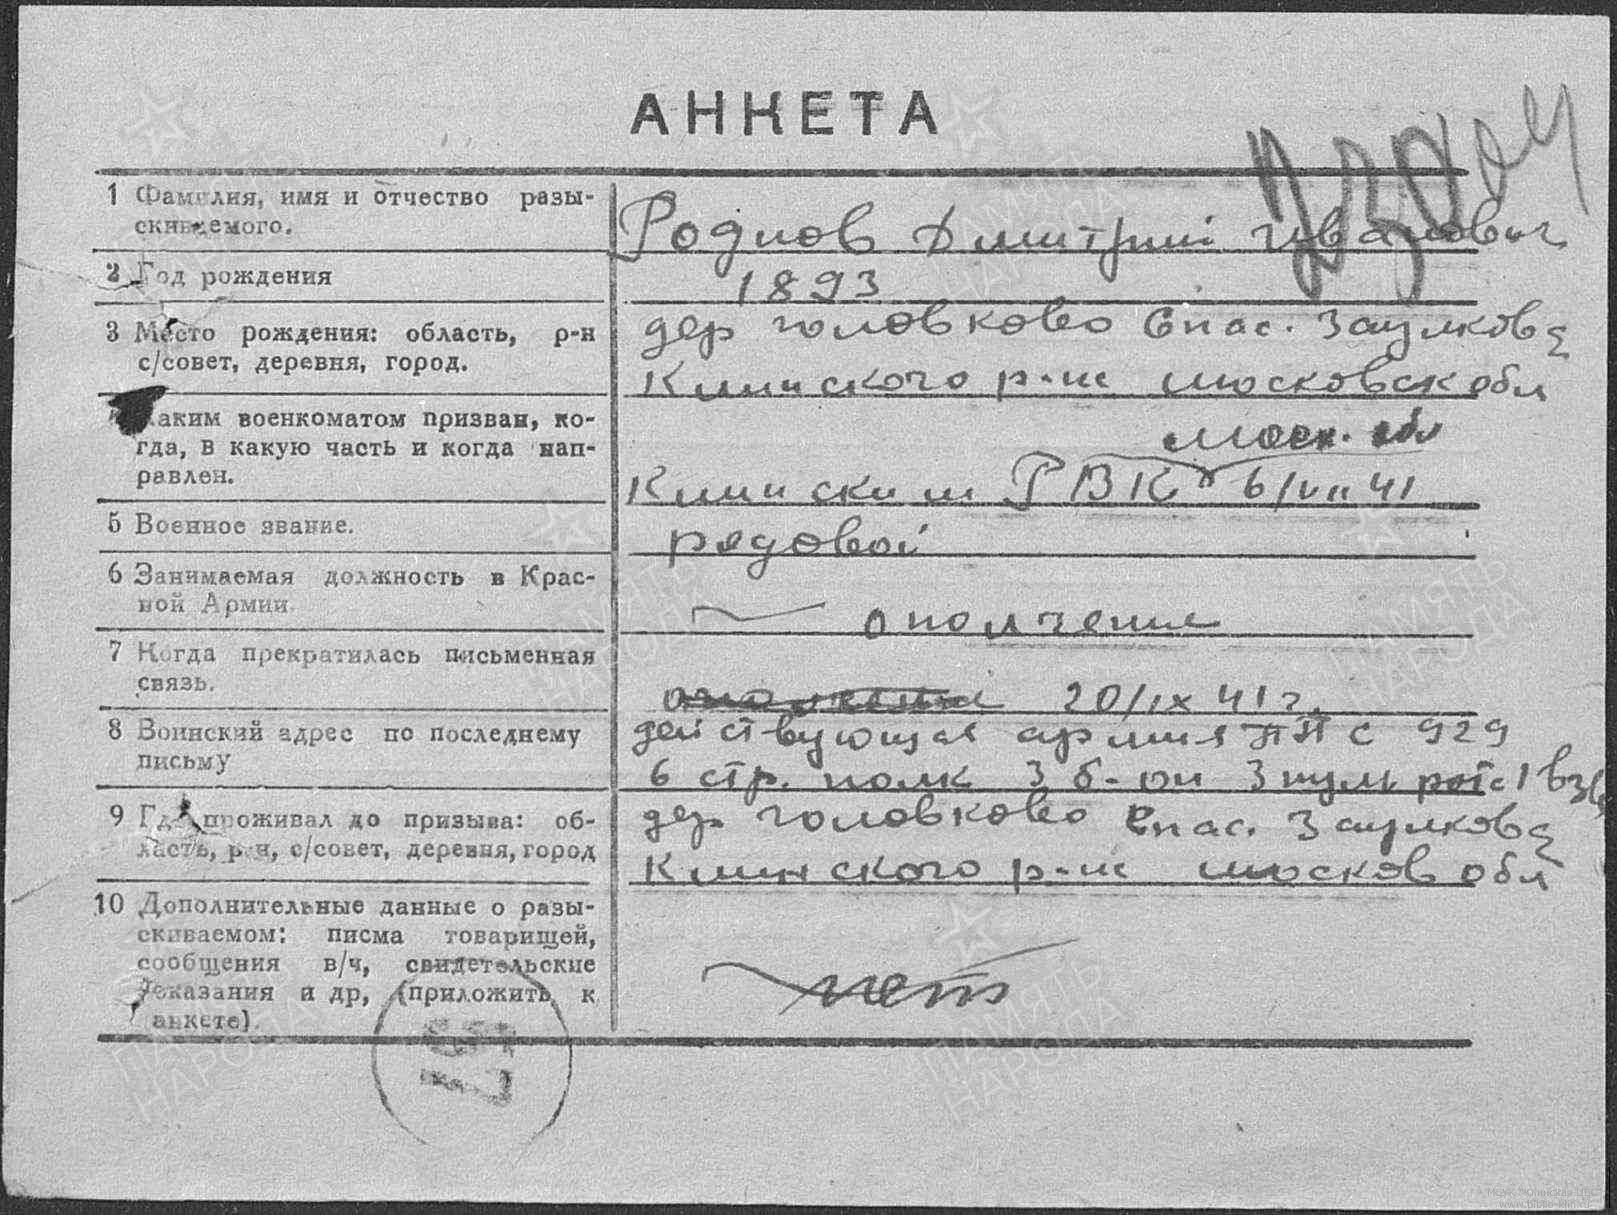 АНКЕТА
1 Фамилия, имя и отчество разы-
скиваемого.
Роднов Дмитрий Иванович
2 Год рождения
1893
3 Место рождения: область, р-н
с/совет, деревня, город.
дер Головково Спас. Заулковс
Клинского р-на московск обл
Каким военкоматом призван, ко-
гда, в какую часть и когда нап-
равлен.
моск. обл
Клинским РВК 6/VII 41
5 Военное звание.
рядовой
6 Занимаемая должность в Крас-
ной Армии
ополчение
7 Когда прекратилась письменная
связь.
20/IX 41 г.
8 Воинский адрес по последнему
письму
действующая армия ППС 929
6 стр. полк 3 б-он 3 пуль рота 1 взв
9 Где проживал до призыва: об-
ласть, р-н, с/совет, деревня, город
дер Головково Спас. Заулковс
Клинского р-на москов обл
10 Дополнительные данные о разы-
скиваемом: писма товарищей,
сообщения в/ч, свидетельские
показания и др, (приложить к
анкете).
нет
ПАМЯТЬ
НАРОДА
www.biblio-klin.ru